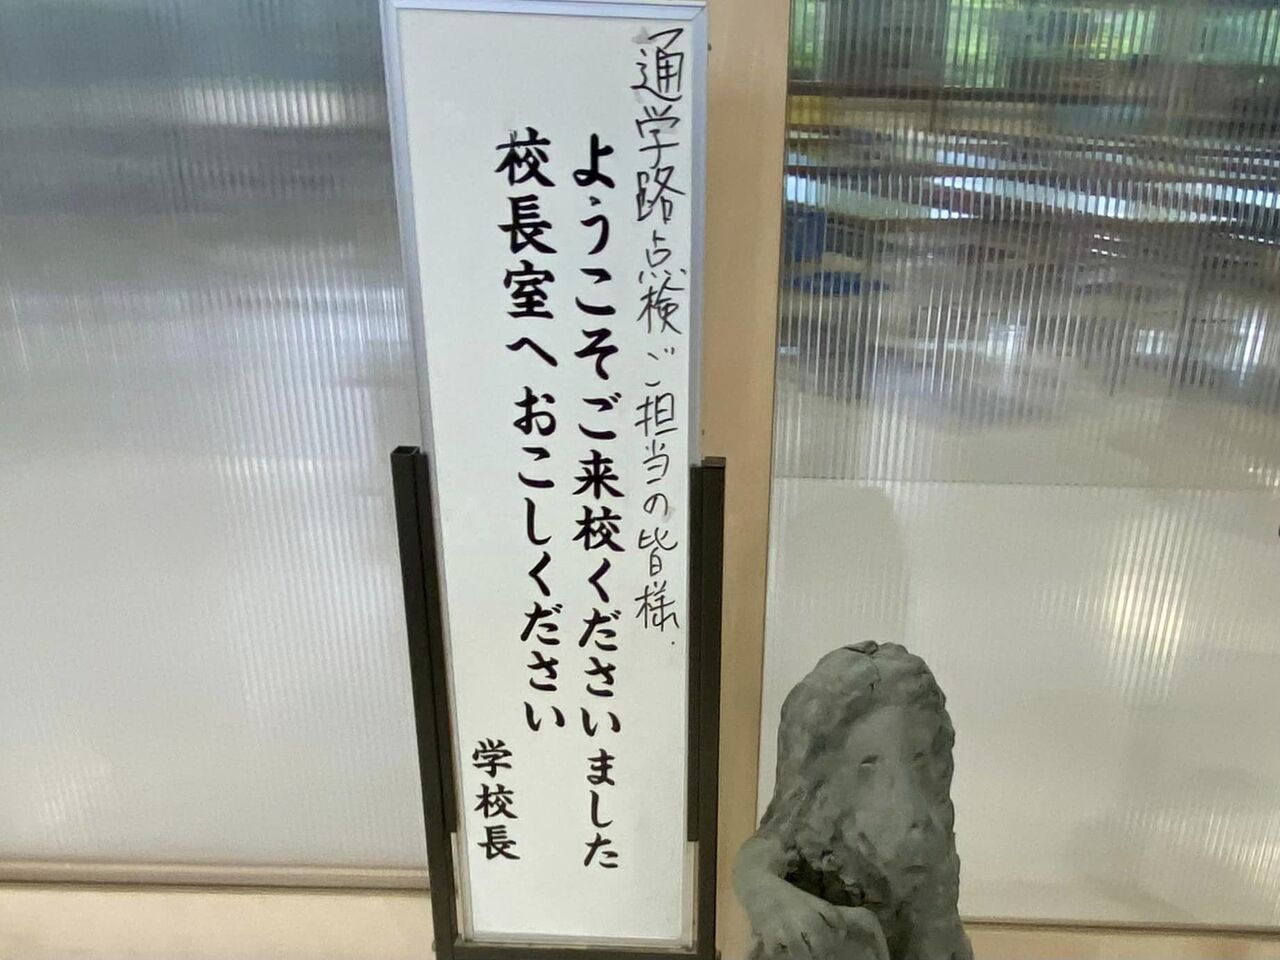 通学路点検ご担当の皆様.
ようこそご来校くださいました
校長室へおこしください
学校長